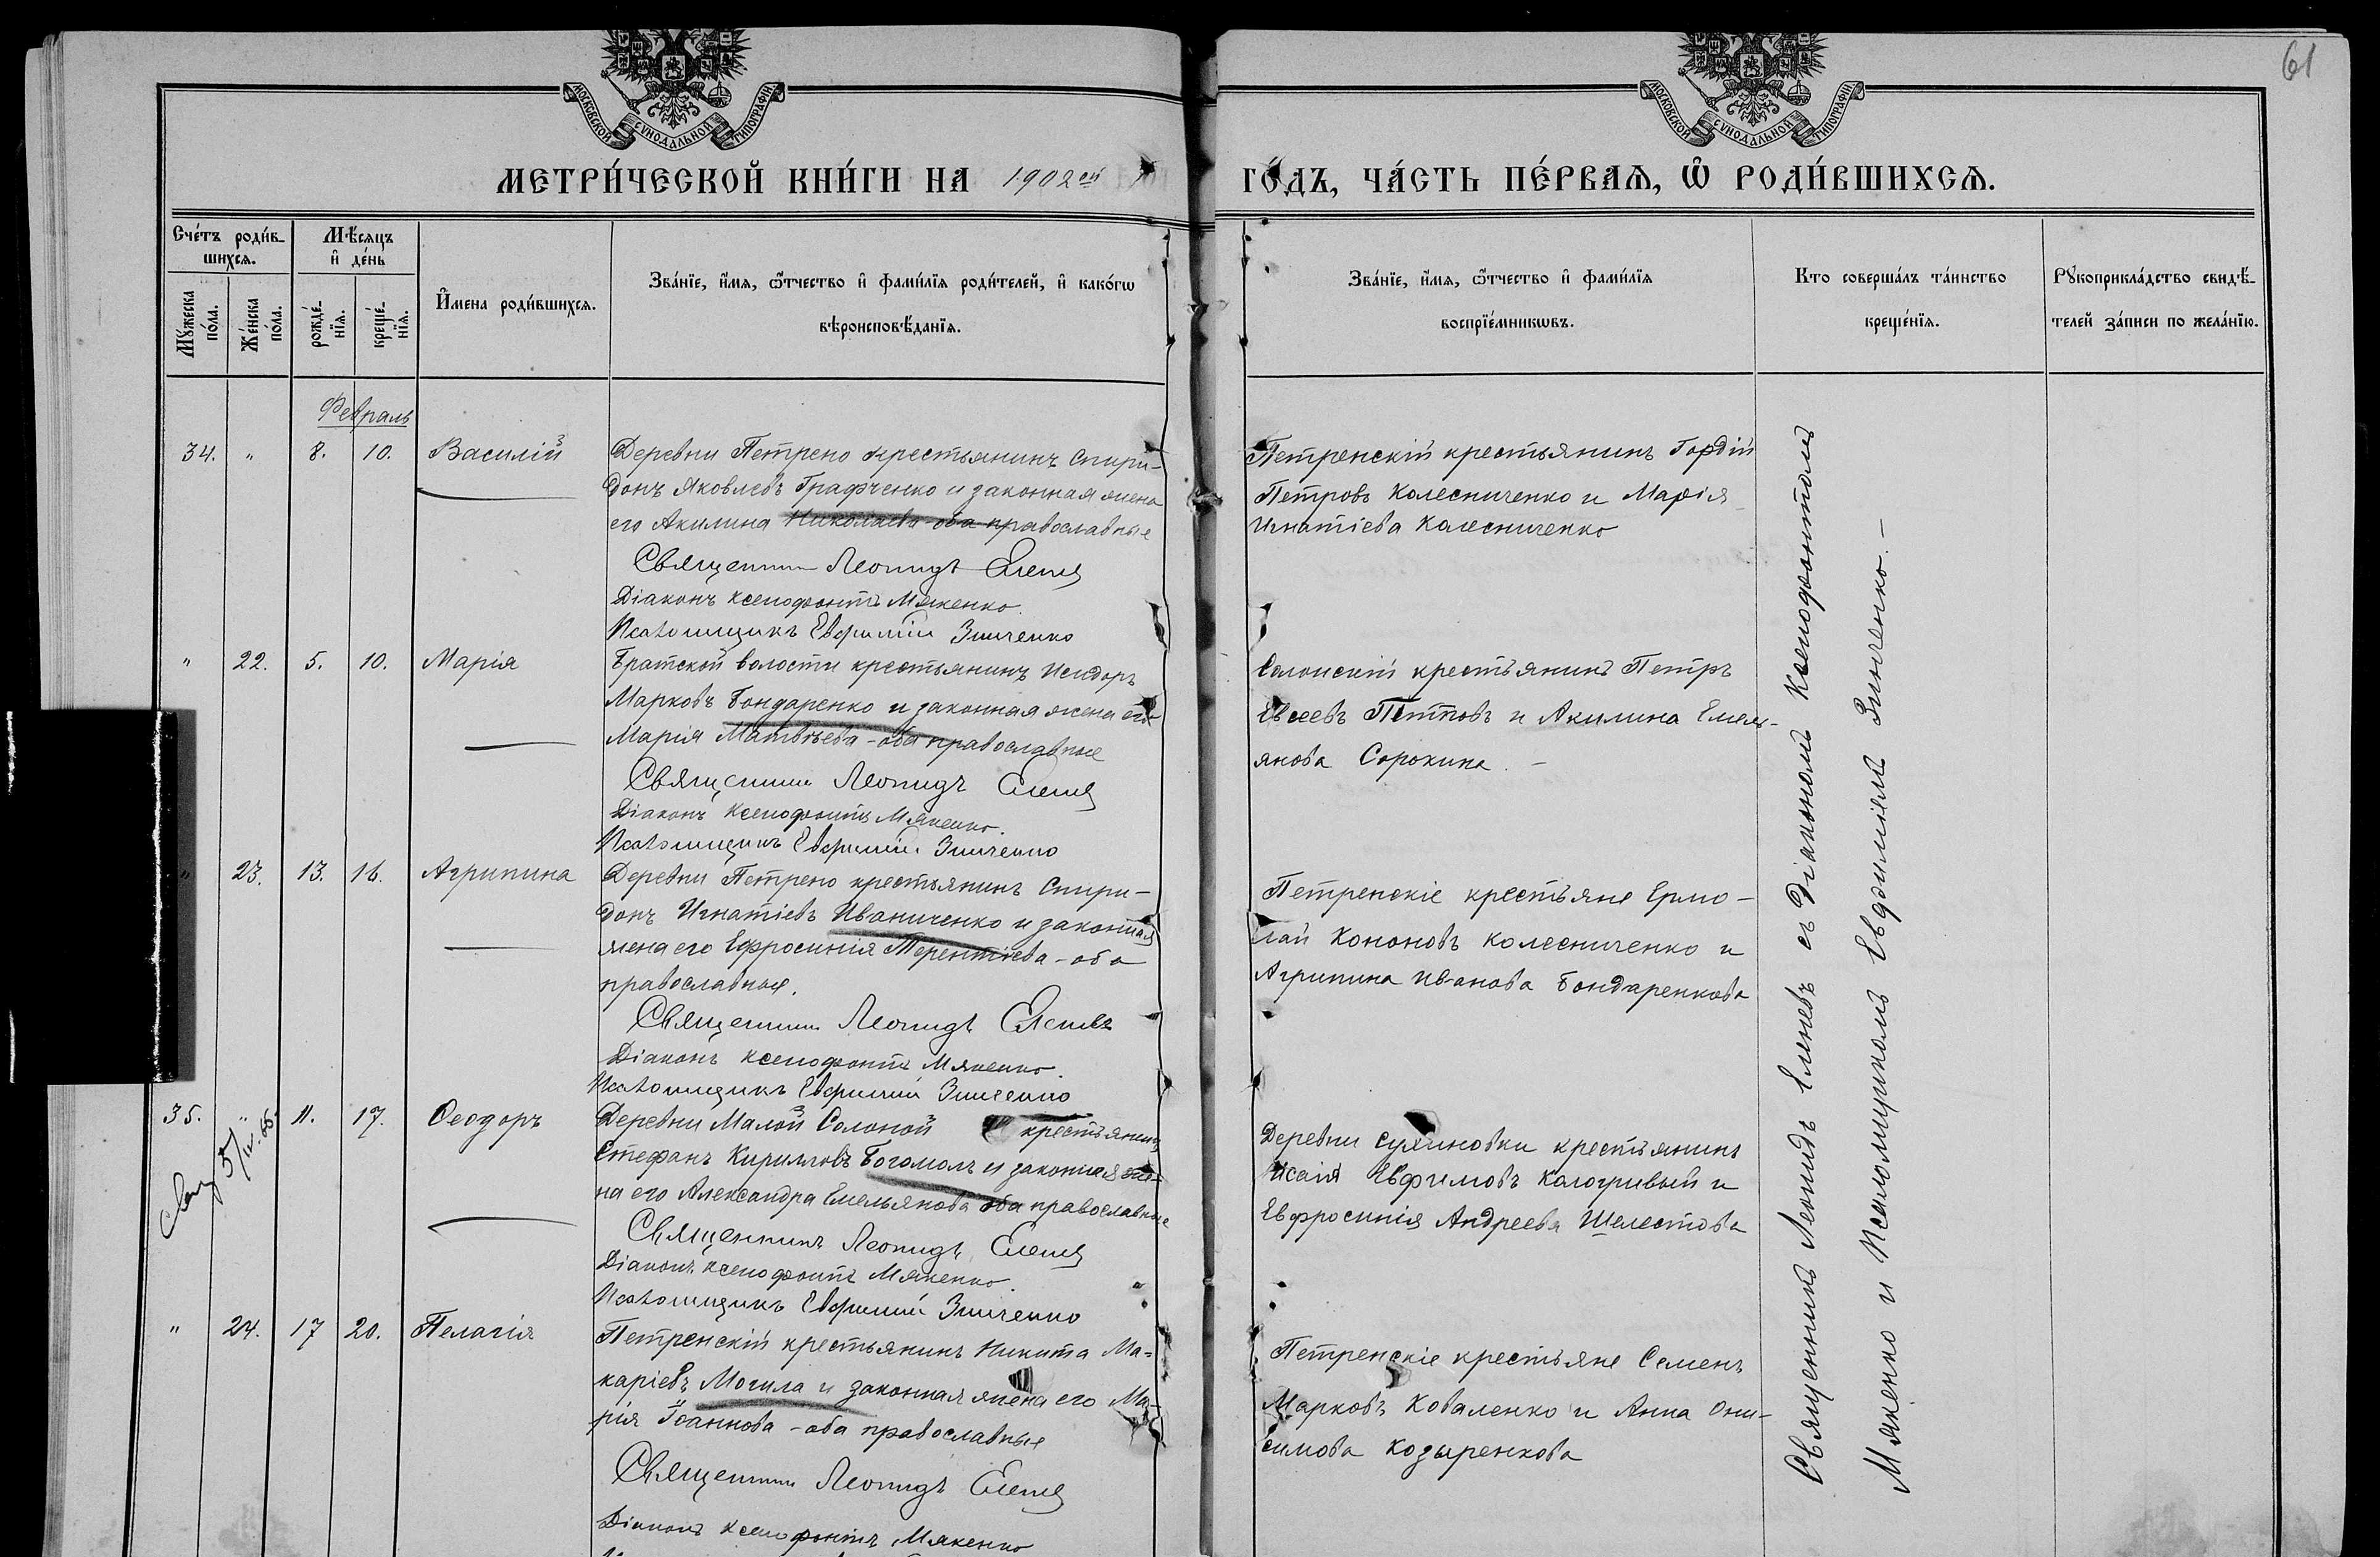 61
МОСКОВСКОЙ СѴНОДАЛЬНОЙ ТИПОГРАФІИ
МОСКОВСКОЙ СѴНОДАЛЬНОЙ ТИПОГРАФІИ
МЕТРИ́ЧЕСКОЙ КНИ́ГИ НА 1902ой
ГО́ДЪ, ЧА́СТЬ ПЕ́РВАѦ, Ѽ РОДИ́ВШИХСѦ.
Сче́тъ роди́в-
шихсѧ.
Мѣ́сѧцъ
и҆ де́нь
Мꙋ́жеска
по́ла.
Же́нска
по́ла.
рожде́-
нїѧ.
креще́-
нїѧ.
И҆мена роди́вшихсѧ.
Зва́нїе, и҆́мѧ, ѻ҆́тчество и҆ фами́лїѧ роди́телей, и҆ како́гѡ
вѣроисповѣ́данїѧ.
Зва́нїе, и҆́мѧ, ѻ҆́тчество и҆ фами́лїѧ
воспрїе́мникѡвъ.
Кто соверша́лъ та́инство
креще́нїѧ.
Рꙋкоприкла́дство свидѣ́-
телей за́писи по жела́нїю.
Февраль
34. " 8. 10. Василій
Деревни Петрено крестьянинъ Спири-
донъ Яковлевъ Графченко и законная жена
его Акилина Николаева-оба православные
Священникъ Леонидъ Еленевъ
Діаконъ Ксенофонтъ Мякенко.
Псаломщикъ Евфимій Зинченко
Петренскій крестьянинъ Гордій
Петровъ Колесниченко и Марія
Игнатіева Колесниченко
" 22. 5. 10. Марія
Братской волости крестьянинъ Исидоръ
Марковъ Бондаренко и законная жена его
Марія Матвѣева-оба православные
Священникъ Леонидъ Еленевъ
Діаконъ Ксенофонтъ Мякенко.
Псаломщикъ Евфимій Зинченко
Солонскій крестьянинъ Петръ
Евсеевъ и Акилина Емель-
янова Сорокина. -
" 23. 13. 16. Агрипина
Деревни Петрено крестьянинъ Спири-
донъ Игнатіевъ Иваниченко и законная
жена его Ефросинія Терентіева-оба
православные.
Священникъ Леонидъ Еленевъ
Діаконъ Ксенофонтъ Мякенко.
Псаломщикъ Евфимій Зинченко
Петренскіе крестьяне Ермо-
лай Кононовъ Колесниченко и
Агрипина Иванова Бондаренкова
35. " 11. 17. Ѳеодоръ
Деревни Малой Солоной крестьянинъ
Стефанъ Кирилловъ Богомолъ и законная же-
на его Александра Емельянова оба православные
Священникъ Леонидъ Еленевъ
Діаконъ Ксенофонтъ Мякенко.
Псаломщикъ Евфимій Зинченко
Деревни Сухиновки крестьянинъ
Исаія Евфимовъ Калогривый и
Евфросинія Андреева Шелестова
" 24. 17 20. Пелагія
Петренскій крестьянинъ Никита Ма-
каріевъ Могила и законная жена его Ма-
рія Іоаннова-оба православные
Священникъ Леонидъ Еленевъ
Діаконъ Ксенофонтъ Мякенко
Петренскіе крестьяне Семенъ
Марковъ Коваленко и Анна Они-
симова Козыренкова
Священникъ Леонидъ Еленевъ съ Діакономъ Ксенофонтомъ
Мякенко и Псаломщикомъ Евфиміемъ Зинченко. -